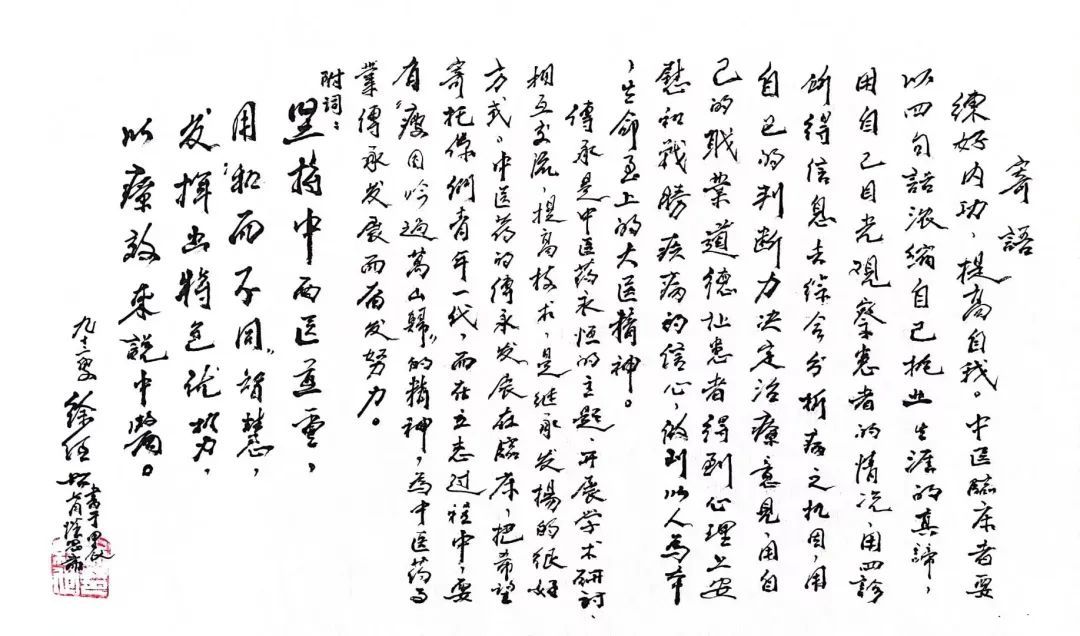 寄語
練好内功、提高自我。中医臨床者要
以四句語濃縮自己执业生涯的真諦，
用自己目光观察患者的情况，用四診
所得信息去综合分析病之机因，用
自己的判断力决定治療意見，用自
己的職業道德让患者得到心理上安
慰和戰勝疾病的信心，做到以人為本
、生命至上的大医精神。
傳承是中医药永恒的主题、开展学术研討、
相互交流，提高技术，是继承发揚的很好
方式。中医药的傳承发展在臨床，把希望
寄托你們青年一代，而在立志过程中，要
有“瘦因吟过萬山歸”的精神，為中医药事
業傳承发展而奋发努力。
附词：
坚持中西医并重，
用“和而不同”智慧，
发揮出特色优势，
以療效来説中醫。
九十二叟 徐